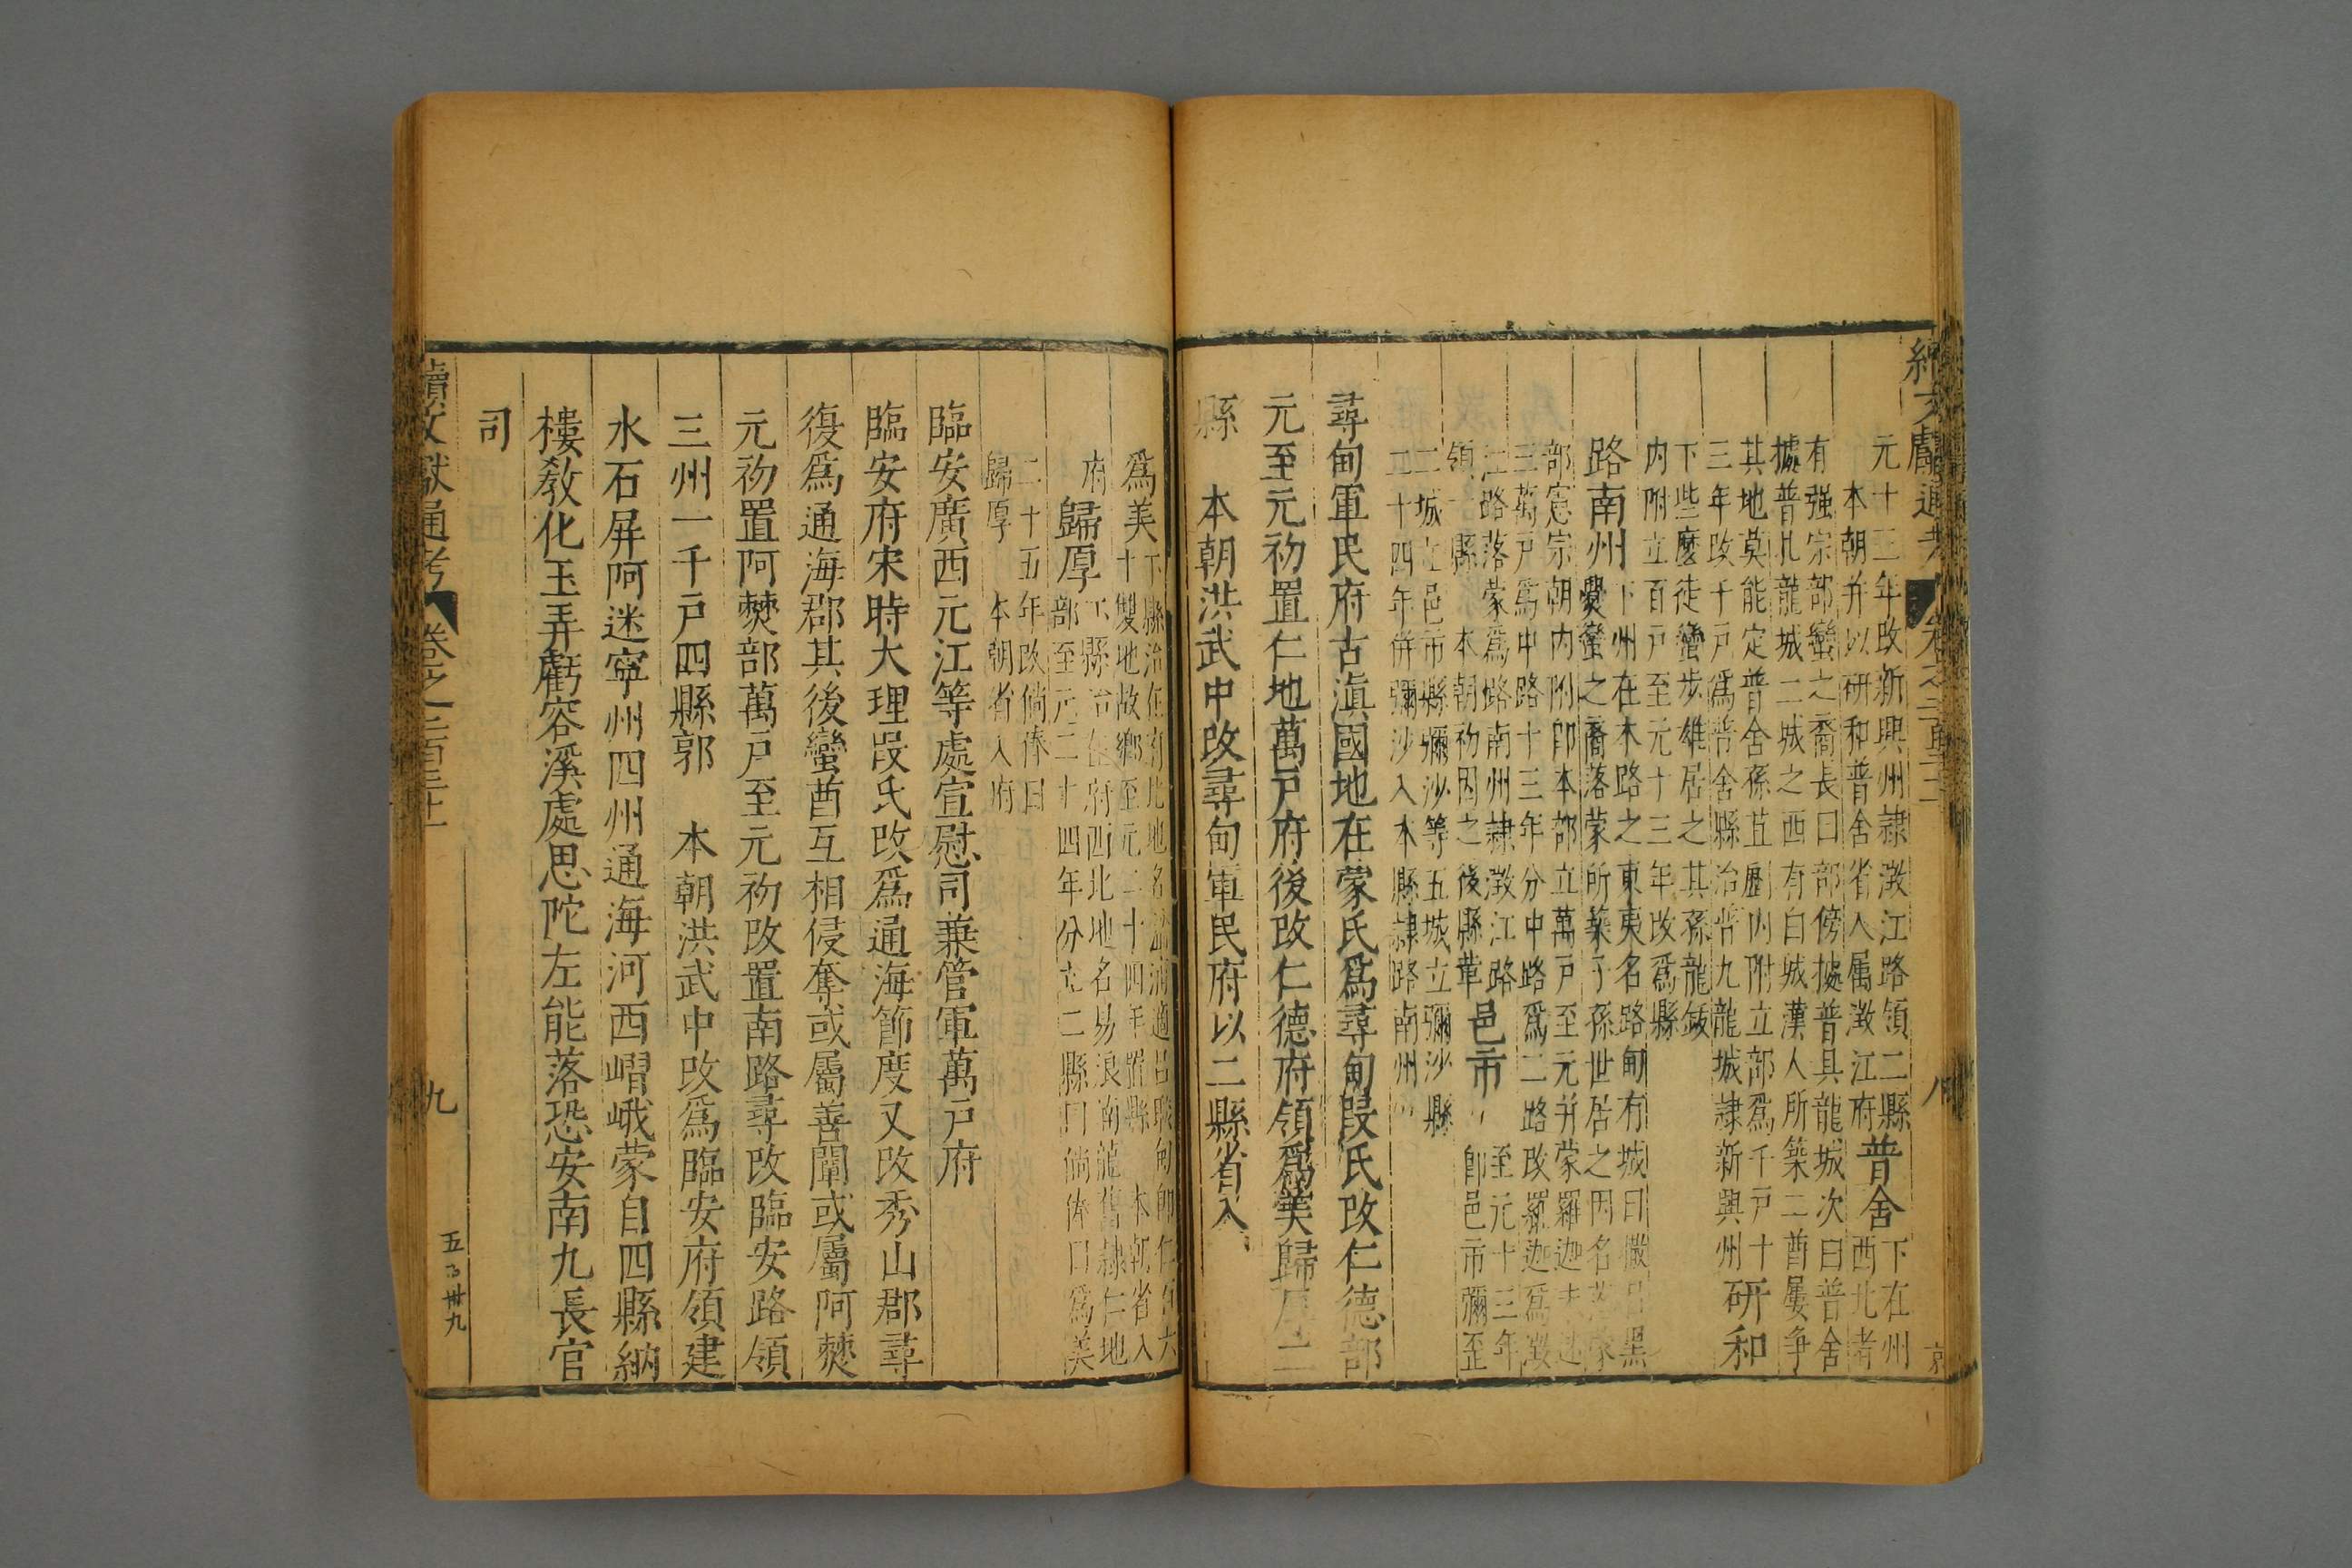 元十三年改新興州隸澂江路領二縣
本朝并以研和普舍省入属澂江府
普舍
下在州
西北者
有强宗部蠻之裔長曰部傍據普具龍城次曰普舍
據普札龍城二城之西有白城漢人所築二酋屢争
其地莫能定普舍孫苴歷内附立部爲千戸十
三年改千戸爲普舍縣治普九龍城隸新興州
研和
下些麽徒蠻步雄居之其孫龍鈸
内附立百戸至元十三年改爲縣
路南州
下州在本路之東夷名路甸有城曰撒吕黑
㸑蠻之裔落蒙所築子孫世居之因名落蒙
部憲宗朝内附即本部立萬戸至元并蒙羅迦
三萬戸爲中路十三年分中路爲二路改羅迦爲澂
江路落蒙爲路南州隸澂江路
領一縣 本朝初因之後縣革
邑市
至元十三年
即邑市彌歪
二城立邑市縣彌沙等五城立彌沙縣
二十四年併彌沙入本縣隸路南州
尋甸軍民府古滇國地在蒙氏爲尋甸段氏改仁德部
元至元初置仁地萬戸府後改仁德府領爲美歸厚二
縣 本朝洪武中改尋甸軍民府以二縣省入
爲美
十雙地故鄉至元二十四年置縣 本朝省入
府
歸厚
下縣治在府西北地名易浪南龍舊隸仁地
部至元二十四年分立二縣曰倘俸曰爲美
二十五年改倘俸曰
歸厚 本朝省入府
臨安廣西元江等處宣慰司兼管軍萬戸府
臨安府宋時大理段氏改爲通海節度又改秀山郡尋
復爲通海郡其後蠻酋互相侵奪或屬善闡或屬阿僰
元初置阿僰部萬戸至元初改置南路尋改臨安路領
三州一千戸四縣郭 本朝洪武中改爲臨安府領建
水石屏阿迷寧州四州通海河西嶍峨蒙自四縣納
樓教化王弄虧容溪處思陀左能落恐安南九長官
司
續文獻通考
九
八